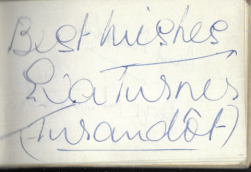 Best Wishes
Eva Turner
(Turandôt)